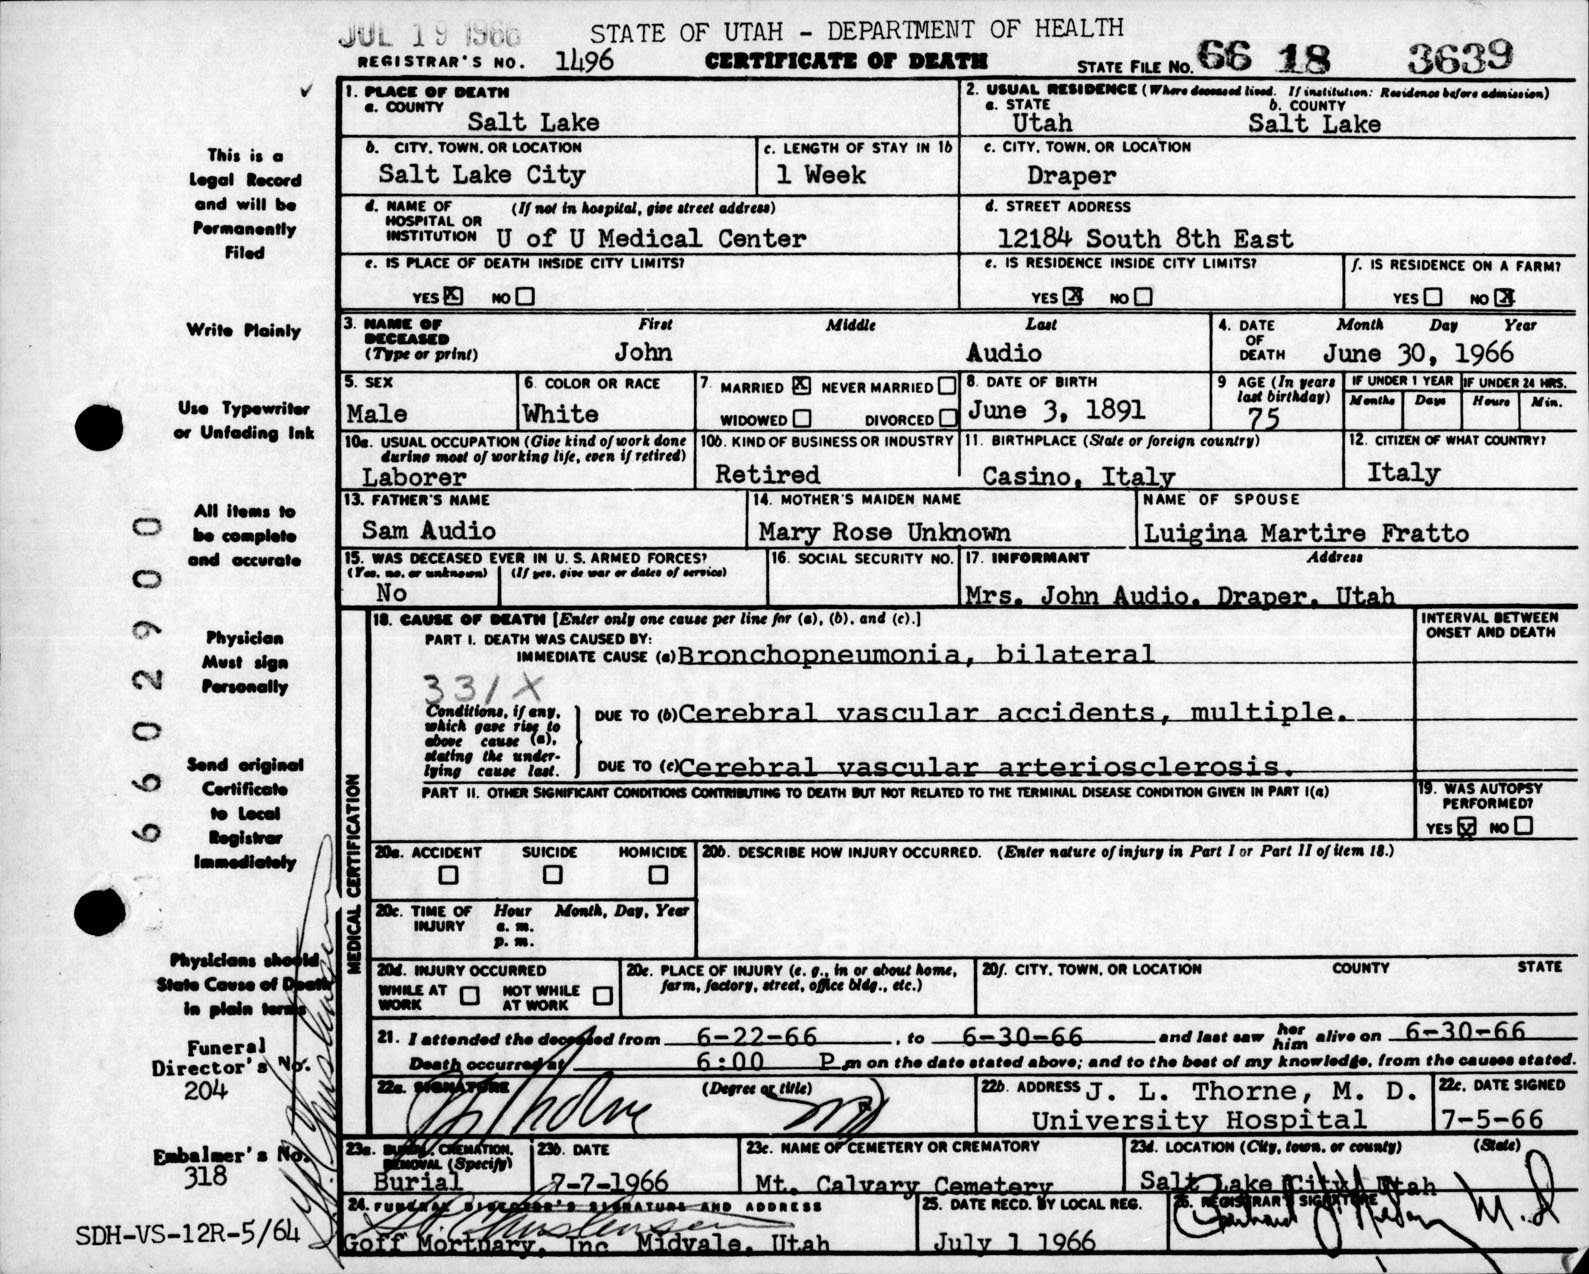 JUL 19 1966
STATE OF UTAH - DEPARTMENT OF HEALTH
REGISTRAR'S NO. 1496
CERTIFICATE OF DEATH
STATE FILE NO. 66 18 3639
1. PLACE OF DEATH
a. COUNTY
Salt Lake
2. USUAL RESIDENCE (Where deceased lived. If institution: Residence before admission)
a. STATE
Utah
b. COUNTY
Salt Lake
b. CITY, TOWN, OR LOCATION
Salt Lake City
c. LENGTH OF STAY IN 1b
1 Week
c. CITY, TOWN, OR LOCATION
Draper
d. NAME OF HOSPITAL OR INSTITUTION
(If not in hospital, give street address)
U of U Medical Center
d. STREET ADDRESS
12184 South 8th East
e. IS PLACE OF DEATH INSIDE CITY LIMITS?
YES X NO
e. IS RESIDENCE INSIDE CITY LIMITS?
YES X NO
f. IS RESIDENCE ON A FARM?
YES NO X
3. NAME OF DECEASED
(Type or print)
First Middle Last
John Audio
4. DATE OF DEATH
Month Day Year
June 30, 1966
5. SEX
Male
6. COLOR OR RACE
White
7. MARRIED X NEVER MARRIED
WIDOWED DIVORCED
8. DATE OF BIRTH
June 3, 1891
9 AGE (In years last birthday)
75
IF UNDER 1 YEAR
Months Days
IF UNDER 24 HRS.
Hours Min.
10a. USUAL OCCUPATION (Give kind of work done during most of working life, even if retired)
Laborer
10b. KIND OF BUSINESS OR INDUSTRY
Retired
11. BIRTHPLACE (State or foreign country)
Casino, Italy
12. CITIZEN OF WHAT COUNTRY?
Italy
13. FATHER'S NAME
Sam Audio
14. MOTHER'S MAIDEN NAME
Mary Rose Unknown
NAME OF SPOUSE
Luigina Martire Fratto
15. WAS DECEASED EVER IN U. S. ARMED FORCES?
(Yes, no, or unknown) (If yes, give war or dates of service)
No
16. SOCIAL SECURITY NO.
17. INFORMANT Address
Mrs. John Audio, Draper, Utah
18. CAUSE OF DEATH [Enter only one cause per line for (a), (b), and (c).]
PART I. DEATH WAS CAUSED BY:
IMMEDIATE CAUSE (a) Bronchopneumonia, bilateral
331X
Conditions, if any, which gave rise to above cause (a), stating the underlying cause last.
DUE TO (b) Cerebral vascular accidents, multiple.
DUE TO (c) Cerebral vascular arteriosclerosis.
INTERVAL BETWEEN ONSET AND DEATH
PART II. OTHER SIGNIFICANT CONDITIONS CONTRIBUTING TO DEATH BUT NOT RELATED TO THE TERMINAL DISEASE CONDITION GIVEN IN PART I(a)
19. WAS AUTOPSY PERFORMED?
YES X NO
20a. ACCIDENT SUICIDE HOMICIDE
20b. DESCRIBE HOW INJURY OCCURRED. (Enter nature of injury in Part I or Part II of item 18.)
20c. TIME OF INJURY
Hour Month, Day, Year
a. m.
p. m.
20d. INJURY OCCURRED
WHILE AT WORK NOT WHILE AT WORK
20e. PLACE OF INJURY (e. g., in or about home, farm, factory, street, office bldg., etc.)
20f. CITY, TOWN, OR LOCATION COUNTY STATE
21. I attended the deceased from 6-22-66, to 6-30-66 and last saw her him alive on 6-30-66
Death occurred at 6:00 P m on the date stated above; and to the best of my knowledge, from the causes stated.
22a. SIGNATURE (Degree or title)
22b. ADDRESS J. L. Thorne, M. D.
University Hospital
22c. DATE SIGNED
7-5-66
23a. BURIAL, CREMATION, REMOVAL (Specify)
Burial
23b. DATE
7-7-1966
23c. NAME OF CEMETERY OR CREMATORY
Mt. Calvary Cemetery
23d. LOCATION (City, town, or county) (State)
Salt Lake City Utah
24. FUNERAL DIRECTOR'S SIGNATURE AND ADDRESS
Goff Mortuary, Inc Midvale, Utah
25. DATE RECD. BY LOCAL REG.
July 1 1966
26. REGISTRAR SIGNATURE
M.D
MEDICAL CERTIFICATION
This is a
Legal Record
and will be
Permanently
Filed
Write Plainly
Use Typewriter
or Unfading Ink
All items to
be complete
and accurate
Physician
Must sign
Personally
Send original
Certificate
to Local
Registrar
Immediately
Physicians should
State Cause of Death
in plain terms
Funeral
Director's No.
204
Embalmer's No.
318
SDH-VS-12R-5/64
6602900